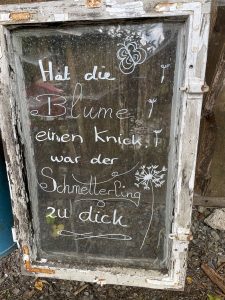 Hat die
Blume
einen Knick,
war der
Schmetterling
zu dick